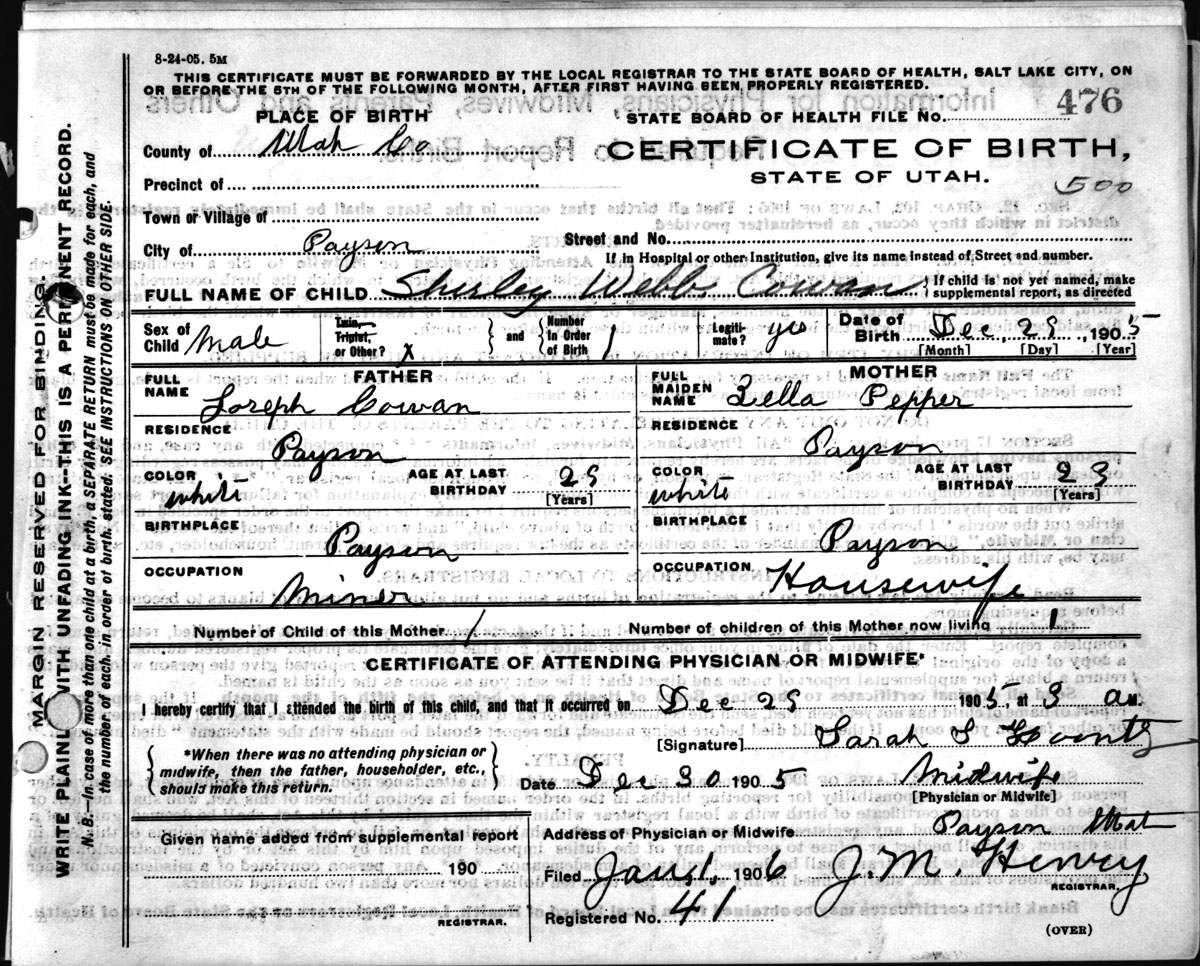 8-24-05. 5M
THIS CERTIFICATE MUST BE FORWARDED BY THE LOCAL REGISTRAR TO THE STATE BOARD OF HEALTH, SALT LAKE CITY, ON
OR BEFORE THE 5TH OF THE FOLLOWING MONTH, AFTER FIRST HAVING BEEN PROPERLY REGISTERED.
PLACE OF BIRTH
STATE BOARD OF HEALTH FILE No. 476
County of Utah Co
CERTIFICATE OF BIRTH,
STATE OF UTAH.
500
Precinct of
Town or Village of
City of Payson
Street and No.
If in Hospital or other Institution, give its name instead of Street and number.
FULL NAME OF CHILD Shirley Webb Cowan { If child is not yet named, make supplemental report, as directed
Sex of Child Male
Twin, Triplet, or Other? x
and
Number in Order of Birth 1
Legiti- mate? yes
Date of Birth Dec, 29, 1905
[Month] [Day] [Year]
FATHER
FULL NAME Joseph Cowan
RESIDENCE
Payson
COLOR white
AGE AT LAST BIRTHDAY 29
[Years]
BIRTHPLACE
Payson
OCCUPATION
Miner
MOTHER
FULL MAIDEN NAME Zella Pepper
RESIDENCE
Payson
COLOR white
AGE AT LAST BIRTHDAY 23
[Years]
BIRTHPLACE
Payson
OCCUPATION Housewife
Number of Child of this Mother 1
Number of children of this Mother now living 1
CERTIFICATE OF ATTENDING PHYSICIAN OR MIDWIFE*
I hereby certify that I attended the birth of this child, and that it occurred on Dec 29 1905, at 3 am.
*When there was no attending physician or
midwife, then the father, householder, etc.,
should make this return.
[Signature] Sarah S
Date Dec 30 1905 Midwife
[Physician or Midwife]
Given name added from supplemental report
190
REGISTRAR.
Address of Physician or Midwife Payson Utah
Filed Jan 1, 1906 J.M. Henry
REGISTRAR.
Registered No. 41
(OVER)
MARGIN RESERVED FOR BINDING.
WRITE PLAINLY WITH UNFADING INK—THIS IS A PERMANENT RECORD.
N. B.—In case of more than one child at a birth, a SEPARATE RETURN must be made for each, and
the number of each, in order of birth, stated. SEE INSTRUCTIONS ON OTHER SIDE.